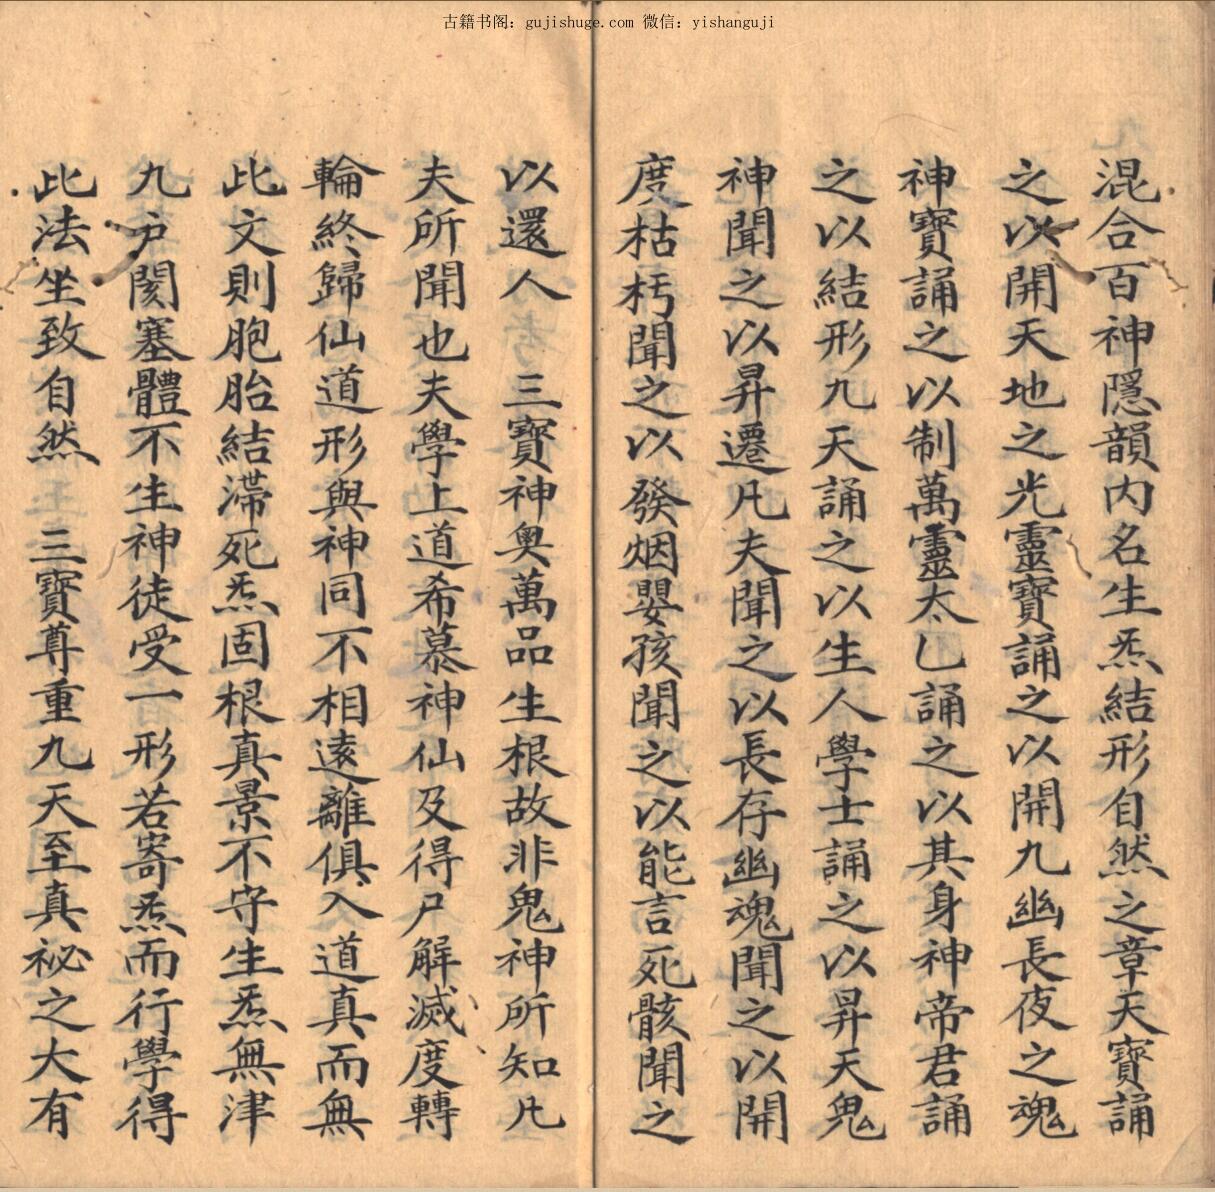 古籍书阁：gujishuge.com 微信：yishanguji
混合百神隱韻内名生炁結形自然之章天寶誦
之以開天地之光靈寶誦之以開九幽長夜之魂
神寶誦之以制萬靈太乙誦之以其身神帝君誦
之以結形九天誦之以生人學士誦之以昇天鬼
神聞之以昇遷凡夫聞之以長存幽魂聞之以開
度枯朽聞之以發烟嬰孩聞之以能言死骸聞之
以還人 三寶神奥萬品生根故非鬼神所知凡
夫所聞也夫學上道希慕神仙及得尸解滅度轉
輪終歸仙道形與神同不相遠離俱入道真而無
此文則胞胎結滯死炁固根真景不守生炁無津
九户閡塞體不生神徒受一形若寄炁而行學得
此法坐致自然 三寶尊重九天至真祕之大有